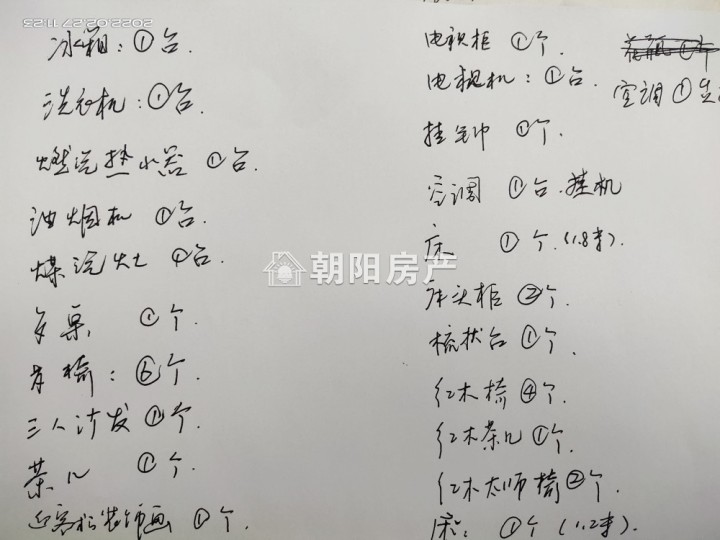 2022.02.27 11:23
冰箱：①台.
洗衣机：①台.
燃汽热水器 ①台.
油烟机 ①台.
煤汽灶 ①台.
桌 ①个.
椅：⑥个.
三人沙发 ①个.
茶几 ①个.
迎客松装饰画 ①个.
电视柜 ①个.
电视机：①台.
挂钟 ①个.
空调 ①台.挂机
床 ①个.(1.8米).
床头柜 ②个.
梳状台 ①个.
红木椅 ④个.
红木茶几 ①个.
红木太师椅 ②个.
床： ①个 (1.2米).
空调 ①
朝阳房产